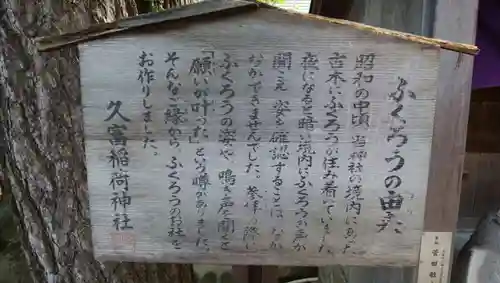 ふくろうの由来
昭和の中頃 当神社の境内にあった
古木にふくろうが住み着いていました
夜になると暗い境内にふくろうの声が
聞こえ 姿を確認することは なか
なかできませんでした。参拝の際に
ふくろうの姿や、鳴き声を聞くと
「願いが叶った」という噂がありました。
そんなご縁から、ふくろうのお社を
お作りしました。
久富稲荷神社